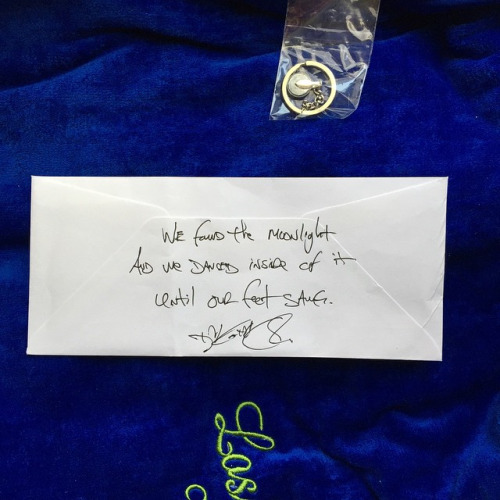 We found the moonlight
And we danced inside of it
until our feet sang.
Las